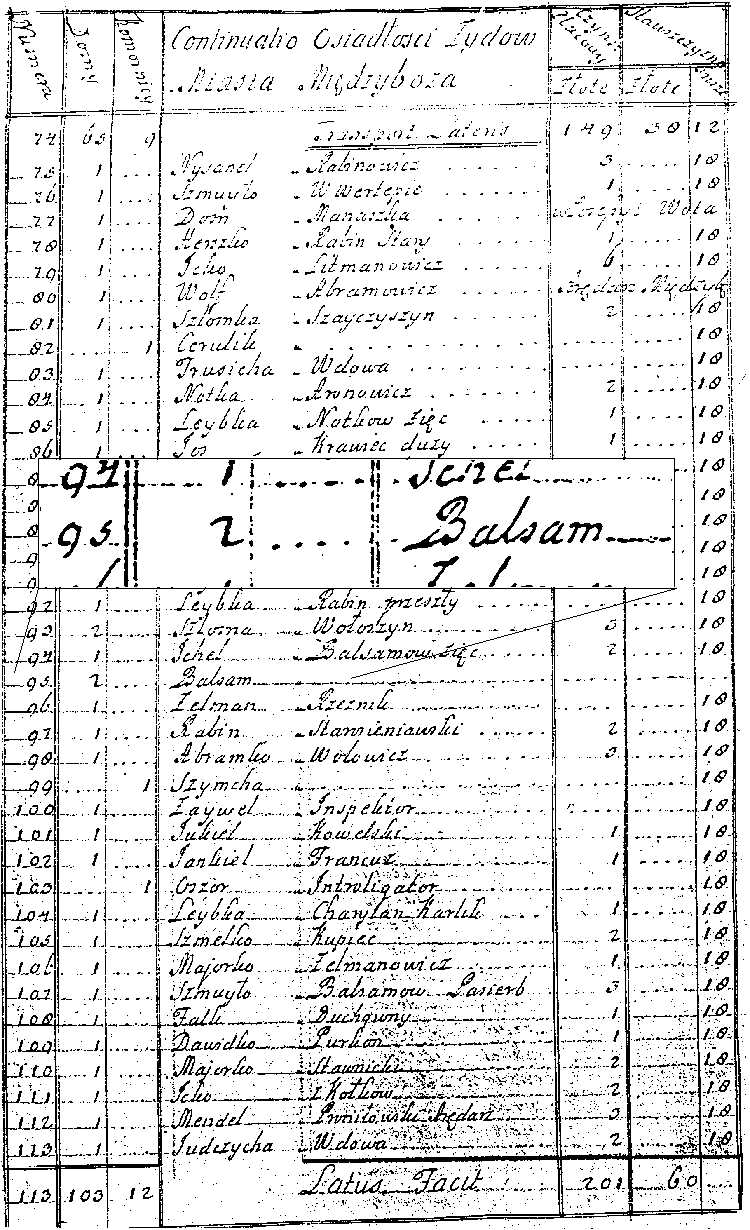 Numera Domy Komornicy Continuatio Osiadłosci Zydow Czynsz
Miasta Międzyboza
Złote Złote
74 65 9 Transport Lateris 149 58 12
75 1 Nysanel Rabinowicz 3 18
76 1 Szmuyło W Wertepie 1 18
77 1 Dom Manaszka Wota
78 1 Herszko Rabin Stary 1 18
79 1 Icko Litmanowicz 6 18
80 1 Wolf Abramowicz
81 1 Szlomka Szayczyszyn 2 18
82 1 Cerulik 18
83 1 Trusicha Wdowa 18
84 1 Notka Aronowicz 2 18
85 1 Leybka Notkow Zięc 1 18
86 1 Jos Krawiec duzy 1 18
94 1 Ichel
95 2 Balsam
92 1 Leybka Rabin przeszły 18
93 2 Szloma Wołoszyn 3 18
94 1 Ichel Balsamow Zięc 2 18
95 2 Balsam
96 1 Zelman Rzeznik 18
97 1 Rabin Stawieniawski 2 18
98 1 Abramko Wołowicz 3 18
99 1 Szymcha 18
100 1 Zaywel Inspektor 18
101 1 Jukiel Kowelski 1 18
102 1 Jankiel Francuz 1 18
103 1 Oszor Introligator 18
104 1 Leybka Charytan Karlik 1 18
105 1 Szmelko Kupiec 2 18
106 1 Majorko Zelmanowicz 1 18
107 1 Szmuyło Balsamow Pasierb 3 18
108 1 Falk Duchowny 1 18
109 1 Dawidko Purkon 1 18
110 1 Majorko Stawnicki 2 18
111 1 Icko z Kotkow 2 18
112 1 Mendel 3 18
113 1 Judczycha Wdowa 2 18
113 103 12 Latus Facit 201 60